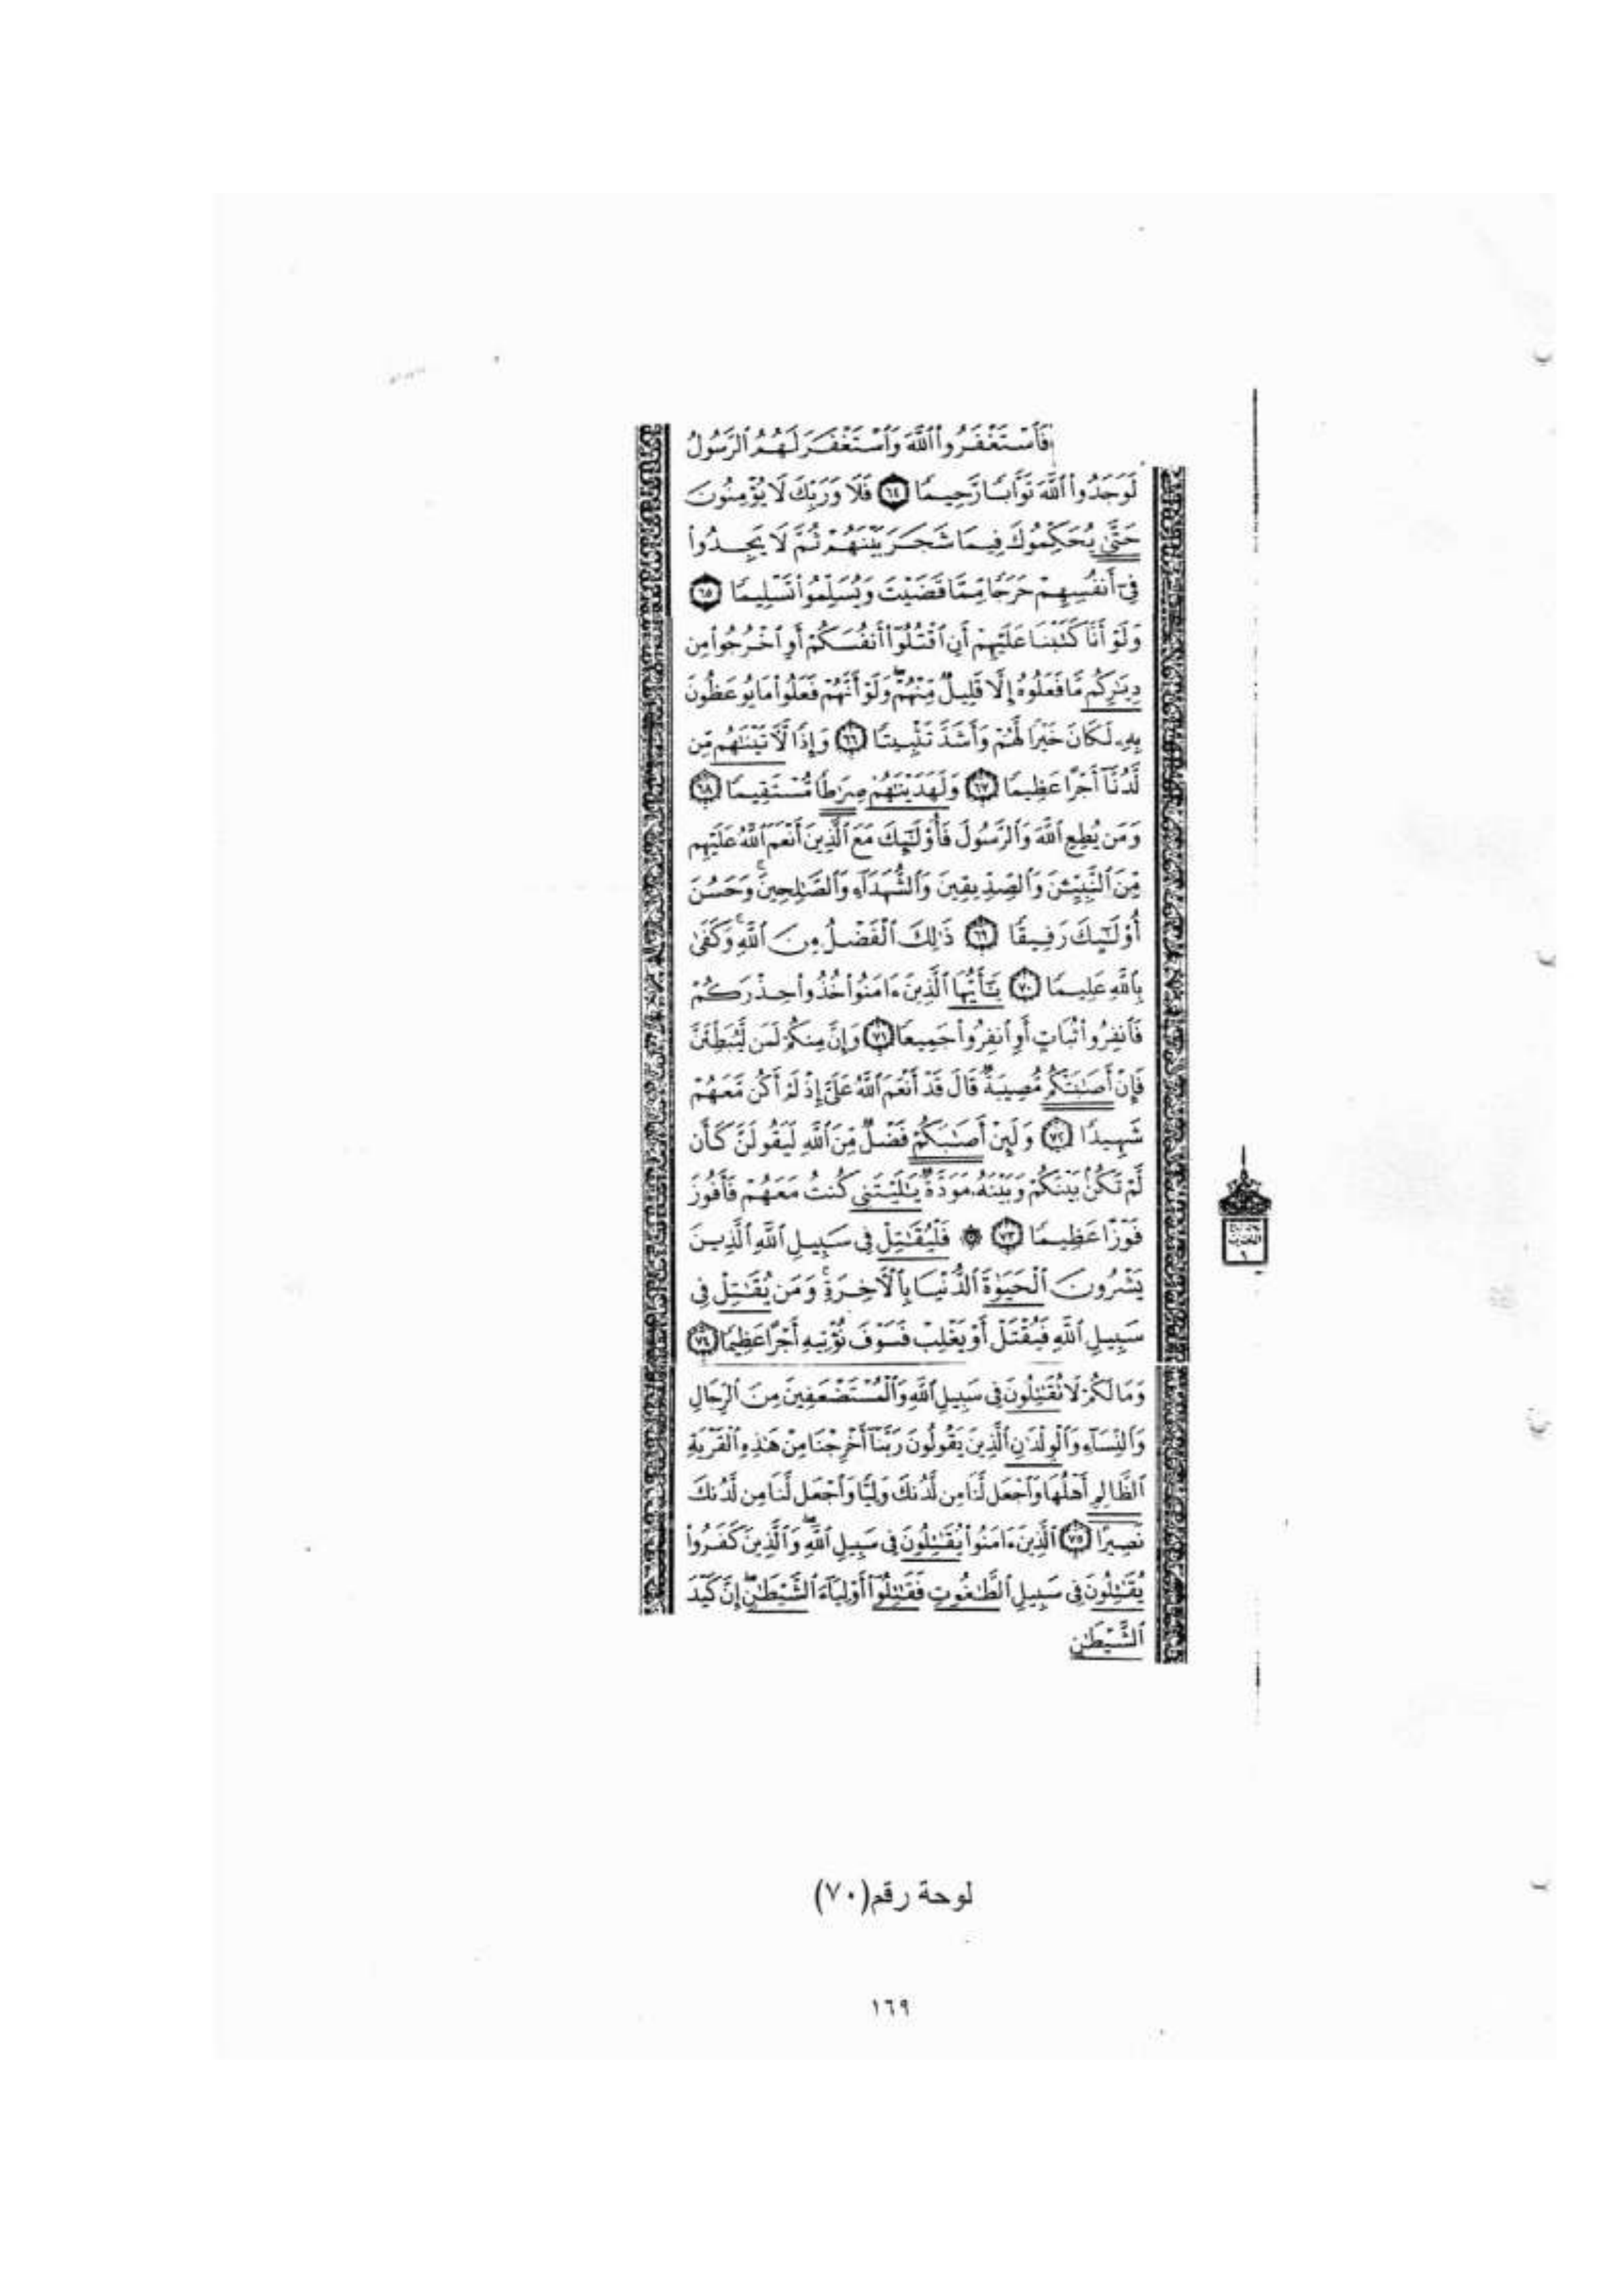 فَٱسْتَغْفَرُوا۟ ٱللَّهَ وَٱسْتَغْفَرَ لَهُمُ ٱلرَّسُولُ
لَوَجَدُوا۟ ٱللَّهَ تَوَّابًا رَّحِيمًا ٦٤ فَلَا وَرَبِّكَ لَا يُؤْمِنُونَ
حَتَّىٰ يُحَكِّمُوكَ فِيمَا شَجَرَ بَيْنَهُمْ ثُمَّ لَا يَجِدُوا۟
فِىٓ أَنفُسِهِمْ حَرَجًا مِّمَّا قَضَيْتَ وَيُسَلِّمُوا۟ تَسْلِيمًا ٦٥
وَلَوْ أَنَّا كَتَبْنَا عَلَيْهِمْ أَنِ ٱقْتُلُوٓا۟ أَنفُسَكُمْ أَوِ ٱخْرُجُوا۟ مِن
دِيَـٰرِكُم مَّا فَعَلُوهُ إِلَّا قَلِيلٌ مِّنْهُمْ ۖ وَلَوْ أَنَّهُمْ فَعَلُوا۟ مَا يُوعَظُونَ
بِهِۦ لَكَانَ خَيْرًا لَّهُمْ وَأَشَدَّ تَثْبِيتًا ٦٦ وَإِذًا لَّـَٔاتَيْنَـٰهُم مِّن
لَّدُنَّآ أَجْرًا عَظِيمًا ٦٧ وَلَهَدَيْنَـٰهُمْ صِرَٰطًا مُّسْتَقِيمًا ٦٨
وَمَن يُطِعِ ٱللَّهَ وَٱلرَّسُولَ فَأُو۟لَـٰٓئِكَ مَعَ ٱلَّذِينَ أَنْعَمَ ٱللَّهُ عَلَيْهِم
مِّنَ ٱلنَّبِيِّـۧنَ وَٱلصِّدِّيقِينَ وَٱلشُّهَدَآءِ وَٱلصَّـٰلِحِينَ ۚ وَحَسُنَ
أُو۟لَـٰٓئِكَ رَفِيقًا ٦٩ ذَٰلِكَ ٱلْفَضْلُ مِنَ ٱللَّهِ ۚ وَكَفَىٰ
بِٱللَّهِ عَلِيمًا ٧٠ يَـٰٓأَيُّهَا ٱلَّذِينَ ءَامَنُوا۟ خُذُوا۟ حِذْرَكُمْ
فَٱنفِرُوا۟ ثُبَاتٍ أَوِ ٱنفِرُوا۟ جَمِيعًا ٧١ وَإِنَّ مِنكُمْ لَمَن لَّيُبَطِّئَنَّ
فَإِنْ أَصَـٰبَتْكُم مُّصِيبَةٌ قَالَ قَدْ أَنْعَمَ ٱللَّهُ عَلَىَّ إِذْ لَمْ أَكُن مَّعَهُمْ
شَهِيدًا ٧٢ وَلَئِنْ أَصَـٰبَكُمْ فَضْلٌ مِّنَ ٱللَّهِ لَيَقُولَنَّ كَأَن
لَّمْ تَكُنۢ بَيْنَكُمْ وَبَيْنَهُۥ مَوَدَّةٌ يَـٰلَيْتَنِى كُنتُ مَعَهُمْ فَأَفُوزَ
فَوْزًا عَظِيمًا ٧٣ ۞ فَلْيُقَـٰتِلْ فِى سَبِيلِ ٱللَّهِ ٱلَّذِينَ
يَشْرُونَ ٱلْحَيَوٰةَ ٱلدُّنْيَا بِٱلْـَٔاخِرَةِ ۚ وَمَن يُقَـٰتِلْ فِى
سَبِيلِ ٱللَّهِ فَيُقْتَلْ أَوْ يَغْلِبْ فَسَوْفَ نُؤْتِيهِ أَجْرًا عَظِيمًا ٧٤
وَمَا لَكُمْ لَا تُقَـٰتِلُونَ فِى سَبِيلِ ٱللَّهِ وَٱلْمُسْتَضْعَفِينَ مِنَ ٱلرِّجَالِ
وَٱلنِّسَآءِ وَٱلْوِلْدَٰنِ ٱلَّذِينَ يَقُولُونَ رَبَّنَآ أَخْرِجْنَا مِنْ هَـٰذِهِ ٱلْقَرْيَةِ
ٱلظَّالِمِ أَهْلُهَا وَٱجْعَل لَّنَا مِن لَّدُنكَ وَلِيًّا وَٱجْعَل لَّنَا مِن لَّدُنكَ
نَصِيرًا ٧٥ ٱلَّذِينَ ءَامَنُوا۟ يُقَـٰتِلُونَ فِى سَبِيلِ ٱللَّهِ ۖ وَٱلَّذِينَ كَفَرُوا۟
يُقَـٰتِلُونَ فِى سَبِيلِ ٱلطَّـٰغُوتِ فَقَـٰتِلُوٓا۟ أَوْلِيَآءَ ٱلشَّيْطَـٰنِ ۖ إِنَّ كَيْدَ
ٱلشَّيْطَـٰنِ
لوحة رقم(٧٠)
١٦٩